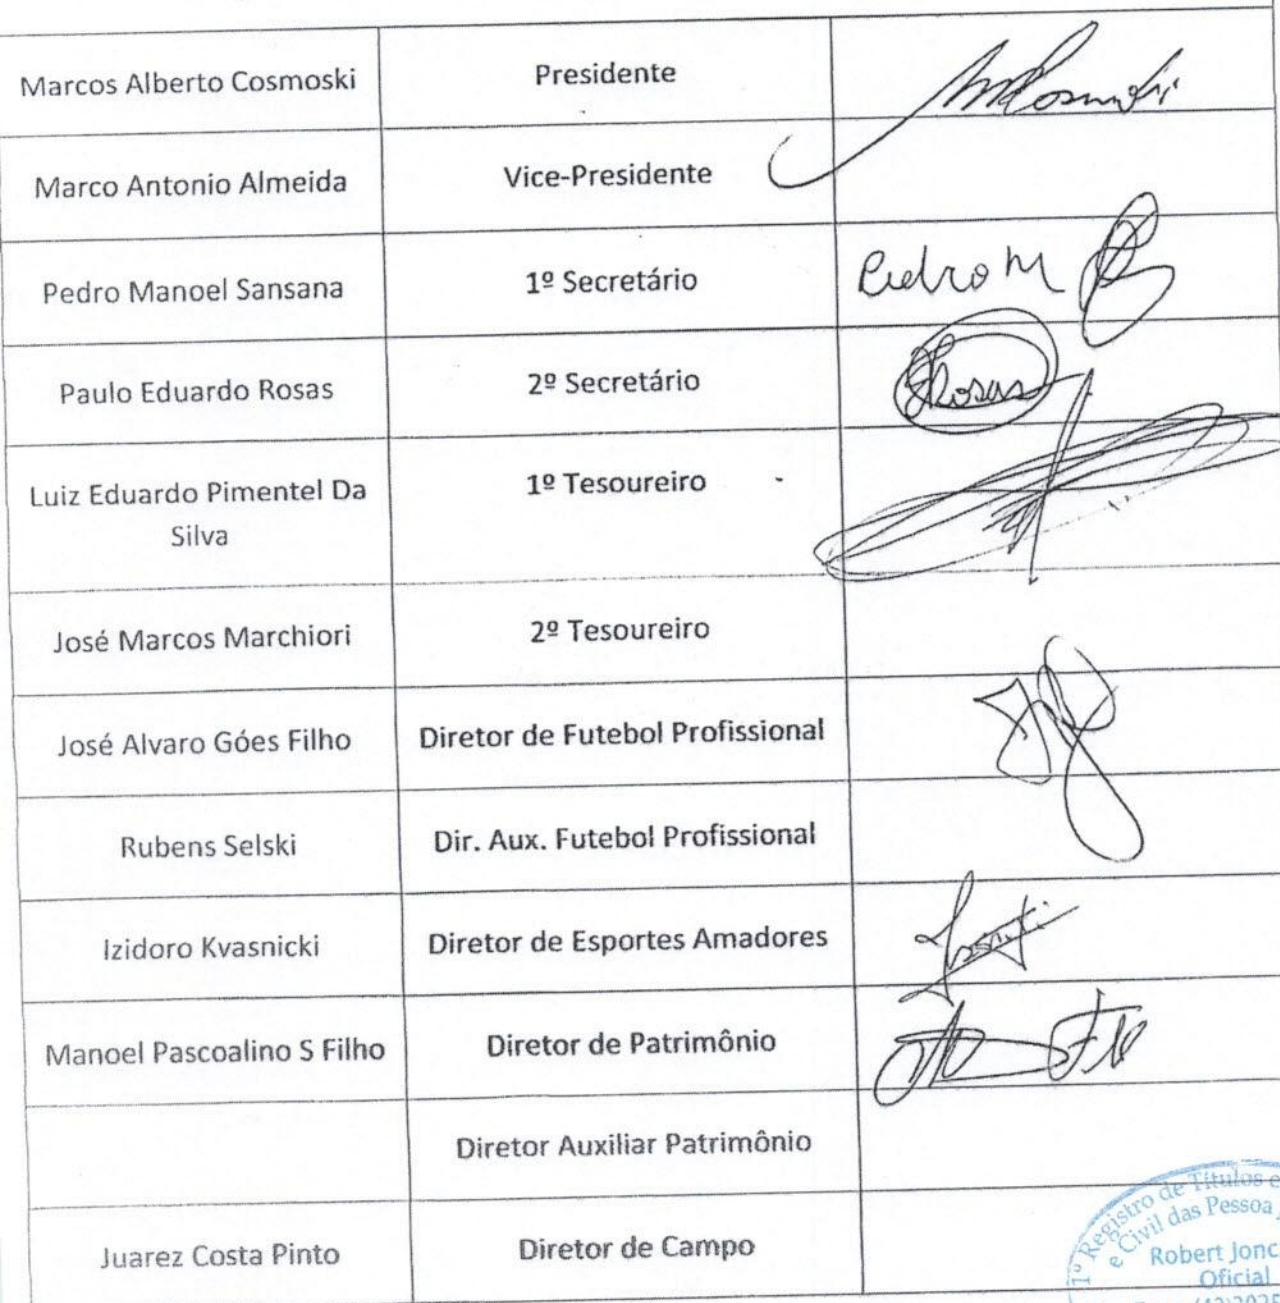 Marcos Alberto Cosmoski Presidente
Marco Antonio Almeida Vice-Presidente
Pedro Manoel Sansana 1º Secretário Pedro M
Paulo Eduardo Rosas 2º Secretário Rosas
Luiz Eduardo Pimentel Da 1º Tesoureiro
Silva
José Marcos Marchiori 2º Tesoureiro
José Alvaro Góes Filho Diretor de Futebol Profissional
Rubens Selski Dir. Aux. Futebol Profissional
Izidoro Kvasnicki Diretor de Esportes Amadores
Manoel Pascoalino S Filho Diretor de Patrimônio
Diretor Auxiliar Patrimônio
Juarez Costa Pinto Diretor de Campo
1º Registro de Títulos e
e Civil das Pessoa
Robert Jonc
Oficial